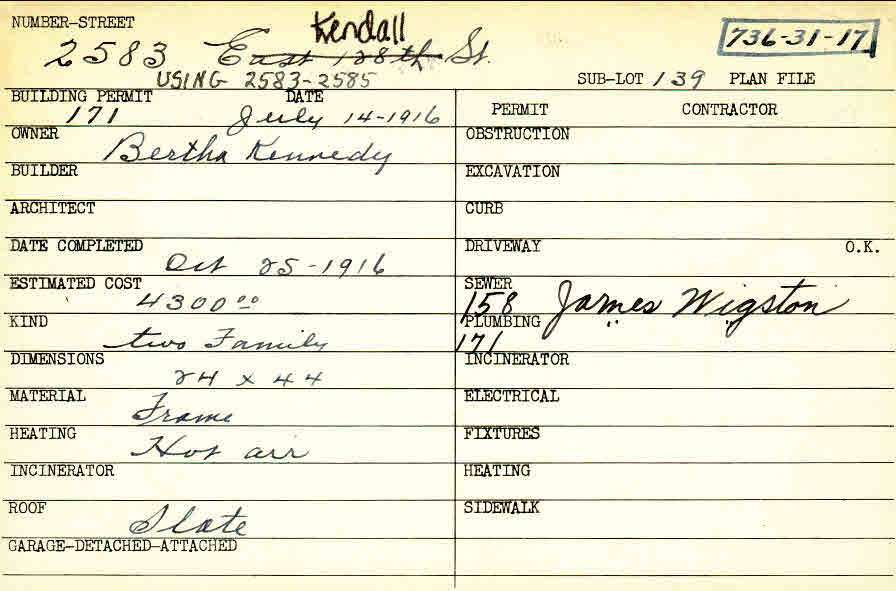 NUMBER-STREET Kendall
2583 East 128th St. 736-31-17
USING 2583-2585 SUB-LOT 139 PLAN FILE
BUILDING PERMIT DATE PERMIT CONTRACTOR
171 July 14-1916
OWNER OBSTRUCTION
Bertha Kennedy
BUILDER EXCAVATION
ARCHITECT CURB
DATE COMPLETED DRIVEWAY O.K.
Oct 25-1916
ESTIMATED COST SEWER
4300.00 158 James Wigston
KIND PLUMBING "  "
two Family 171
DIMENSIONS INCINERATOR
24 x 44
MATERIAL ELECTRICAL
Frame
HEATING FIXTURES
Hot air
INCINERATOR HEATING
ROOF SIDEWALK
Slate
GARAGE-DETACHED-ATTACHED